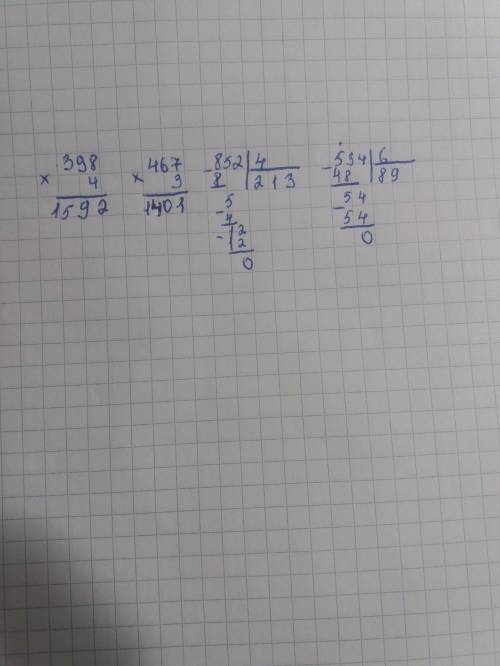 398
× 4
1592
467
× 3
1401
- 852 | 4
8 213
- 5
4
- 12
12
0
- 534 | 6
48 89
- 54
54
0